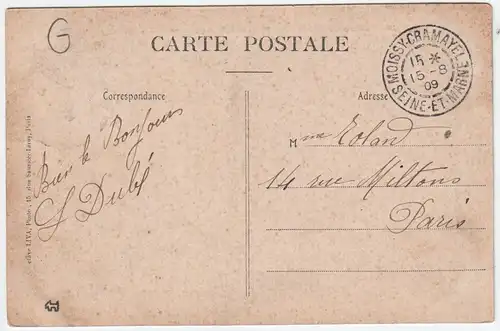 G
CARTE POSTALE
MOISSY-CRAMAYEL
15 *
15 - 8
09
SEINE-ET-MARNE
Correspondance
Adresse
Bien le Bonjour
Dubé
Mme Roland
14 rue Miltons
Paris